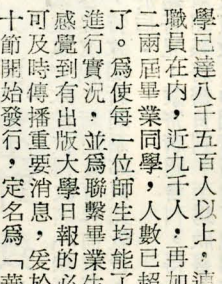 學已達八千五百人以上，這
職員在內，近九千人，再加
二兩屆畢業同學，人數已超
了。爲使每一位師生均能了
進行實況，並爲聯繫畢業生
感覺到有出版大學日報的必
可及時傳播重要消息，爰於
十節開始發行，定名爲「華